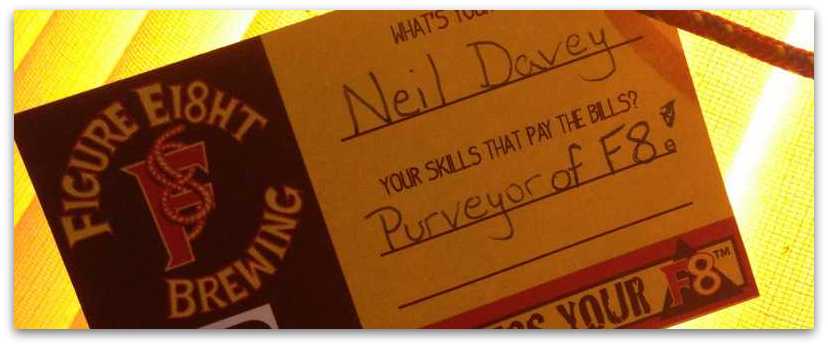 FIGURE E18HT
BREWING
F8
WHAT'S YOUR
Neil Davey
YOUR SKILLS THAT PAY THE BILLS?
Purveyor of F8!
YOUR F8™